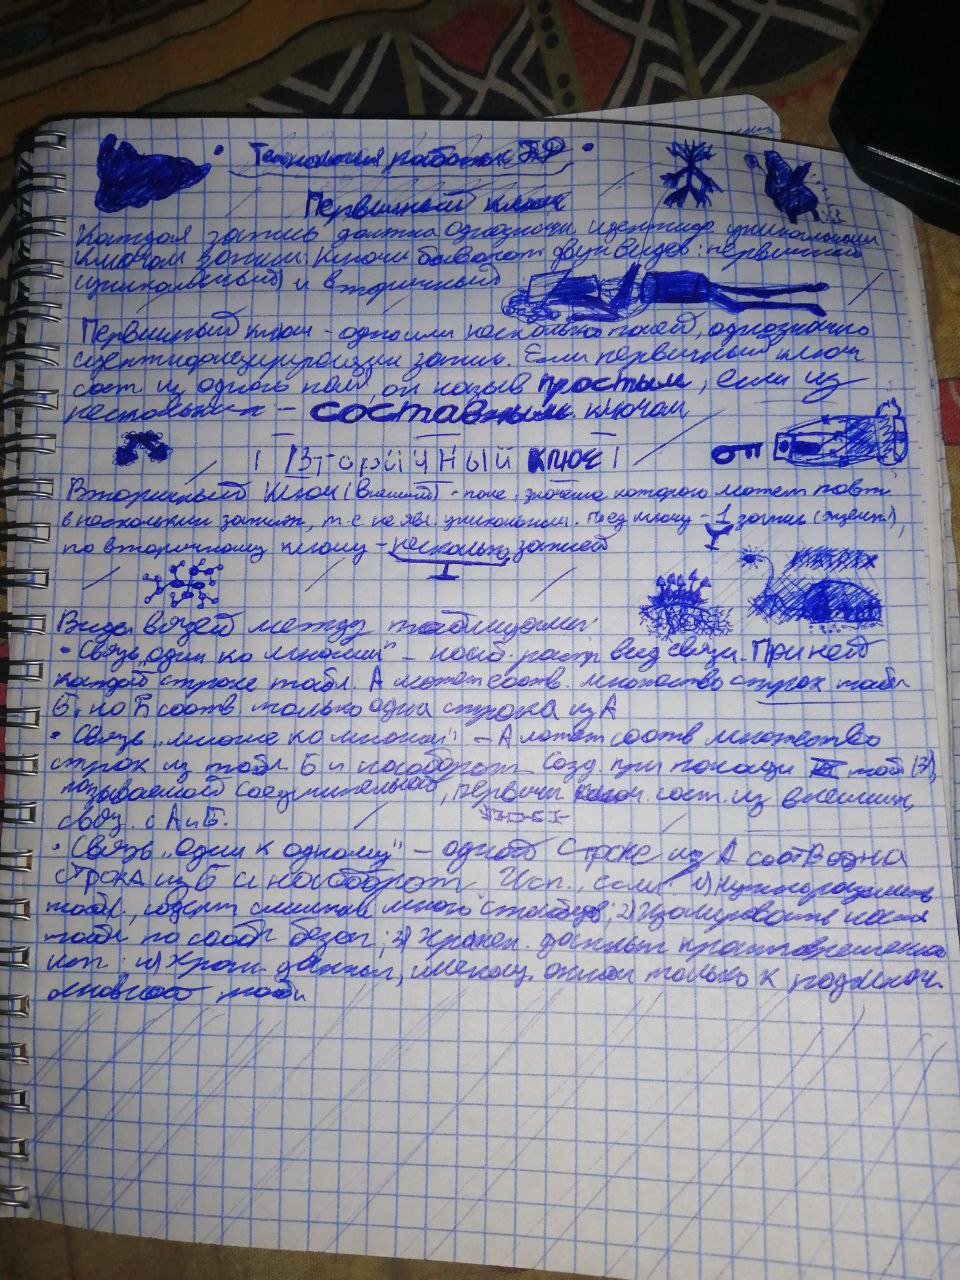 Технология работы с БД
Первичный ключ
Каждая запись должна однозначн. идентифир. уникальным
ключом записи. Ключи бывают двух видов: первичный
(уникальный) и вторичный
Первичный ключ - одно или несколько полей, однозначно
идентифицирующих запись. Если первичный ключ
сост. из одного поля, он назыв. простым, если из
нескольких - составным ключом
Вторичный ключ
Вторичный ключ (внешний) - поле, значение которого может повт.
в нескольких записях, т.е. не явл. уникальным. Перв. ключу - 1 запись
по вторичному ключу - несколько записей
Виды связей между таблицами:
• Связь "один ко многим" - наиб. распр. вид связи. При ней
каждой строке табл. А может соотв. множество строк табл.
Б, но Б соотв. только одна строка из А
• Связь "многие ко многим" - А может соотв множество
строк из табл. Б и наоборот. Созд. при помощи табл. (3),
называемой соединительной, первичн. ключ. сост. из внешних,
связ. с А и Б.
• Связь "один к одному" - одной строке из А соотв одна
строка из Б и наоборот. Исп., если: 1) нужно разделить
табл., содерж. слишком много столбцов; 2) Изолировать часть
табл по сообр безоп; 3) Хранен. данных кратковременно
исп; 4) Хран. данных, имеющ. отнош только к подмнож.
основной табл